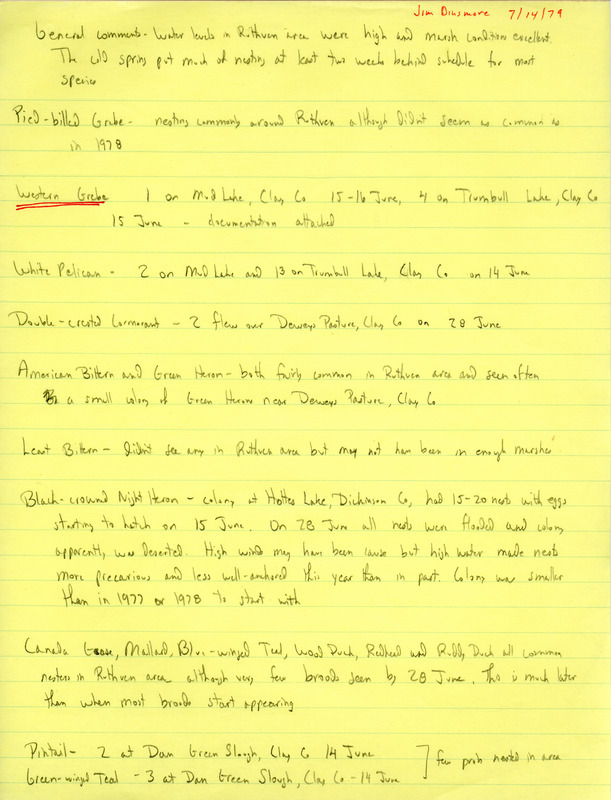 Jim Dinsmore 7/14/79
General comments - Water levels in Ruthven area were high and marsh conditions excellent.
The cold spring put much of nesting at least two weeks behind schedule for most
species
Pied-billed Grebe - nesting commonly around Ruthven although didn't seem as common as
in 1978
Western Grebe 1 on Mud Lake, Clay Co 15-16 June, 4 on Trumbull Lake, Clay Co
15 June - documentation attached
White Pelican - 2 on Mud Lake and 13 on Trumbull Lake, Clay Co on 14 June
Double-crested Cormorant - 2 flew over Deweys Pasture, Clay Co on 28 June
American Bittern and Green Heron - both fairly common in Ruthven area and seen often
a small colony of Green Herons near Deweys Pasture, Clay Co
Least Bittern - didn't see any in Ruthven area but may not have been in enough marshes
Black-crowned Night Heron - colony at Hottes Lake, Dickinson Co, had 15-20 nests with eggs
starting to hatch on 15 June. On 28 June all nests were flooded and colony
apparently was deserted. High winds may have been cause but high water made nests
more precarious and less well-anchored this year than in past. Colony was smaller
than in 1977 or 1978 to start with
Canada Goose, Mallard, Blue-winged Teal, Wood Duck, Redhead and Ruddy Duck all common
nesters in Ruthven area although very few broods seen by 28 June. This is much later
than when most broods start appearing
Pintail - 2 at Dan Green Slough, Clay Co 14 June ] few prob nested in area
Green-winged Teal - 3 at Dan Green Slough, Clay Co - 14 June